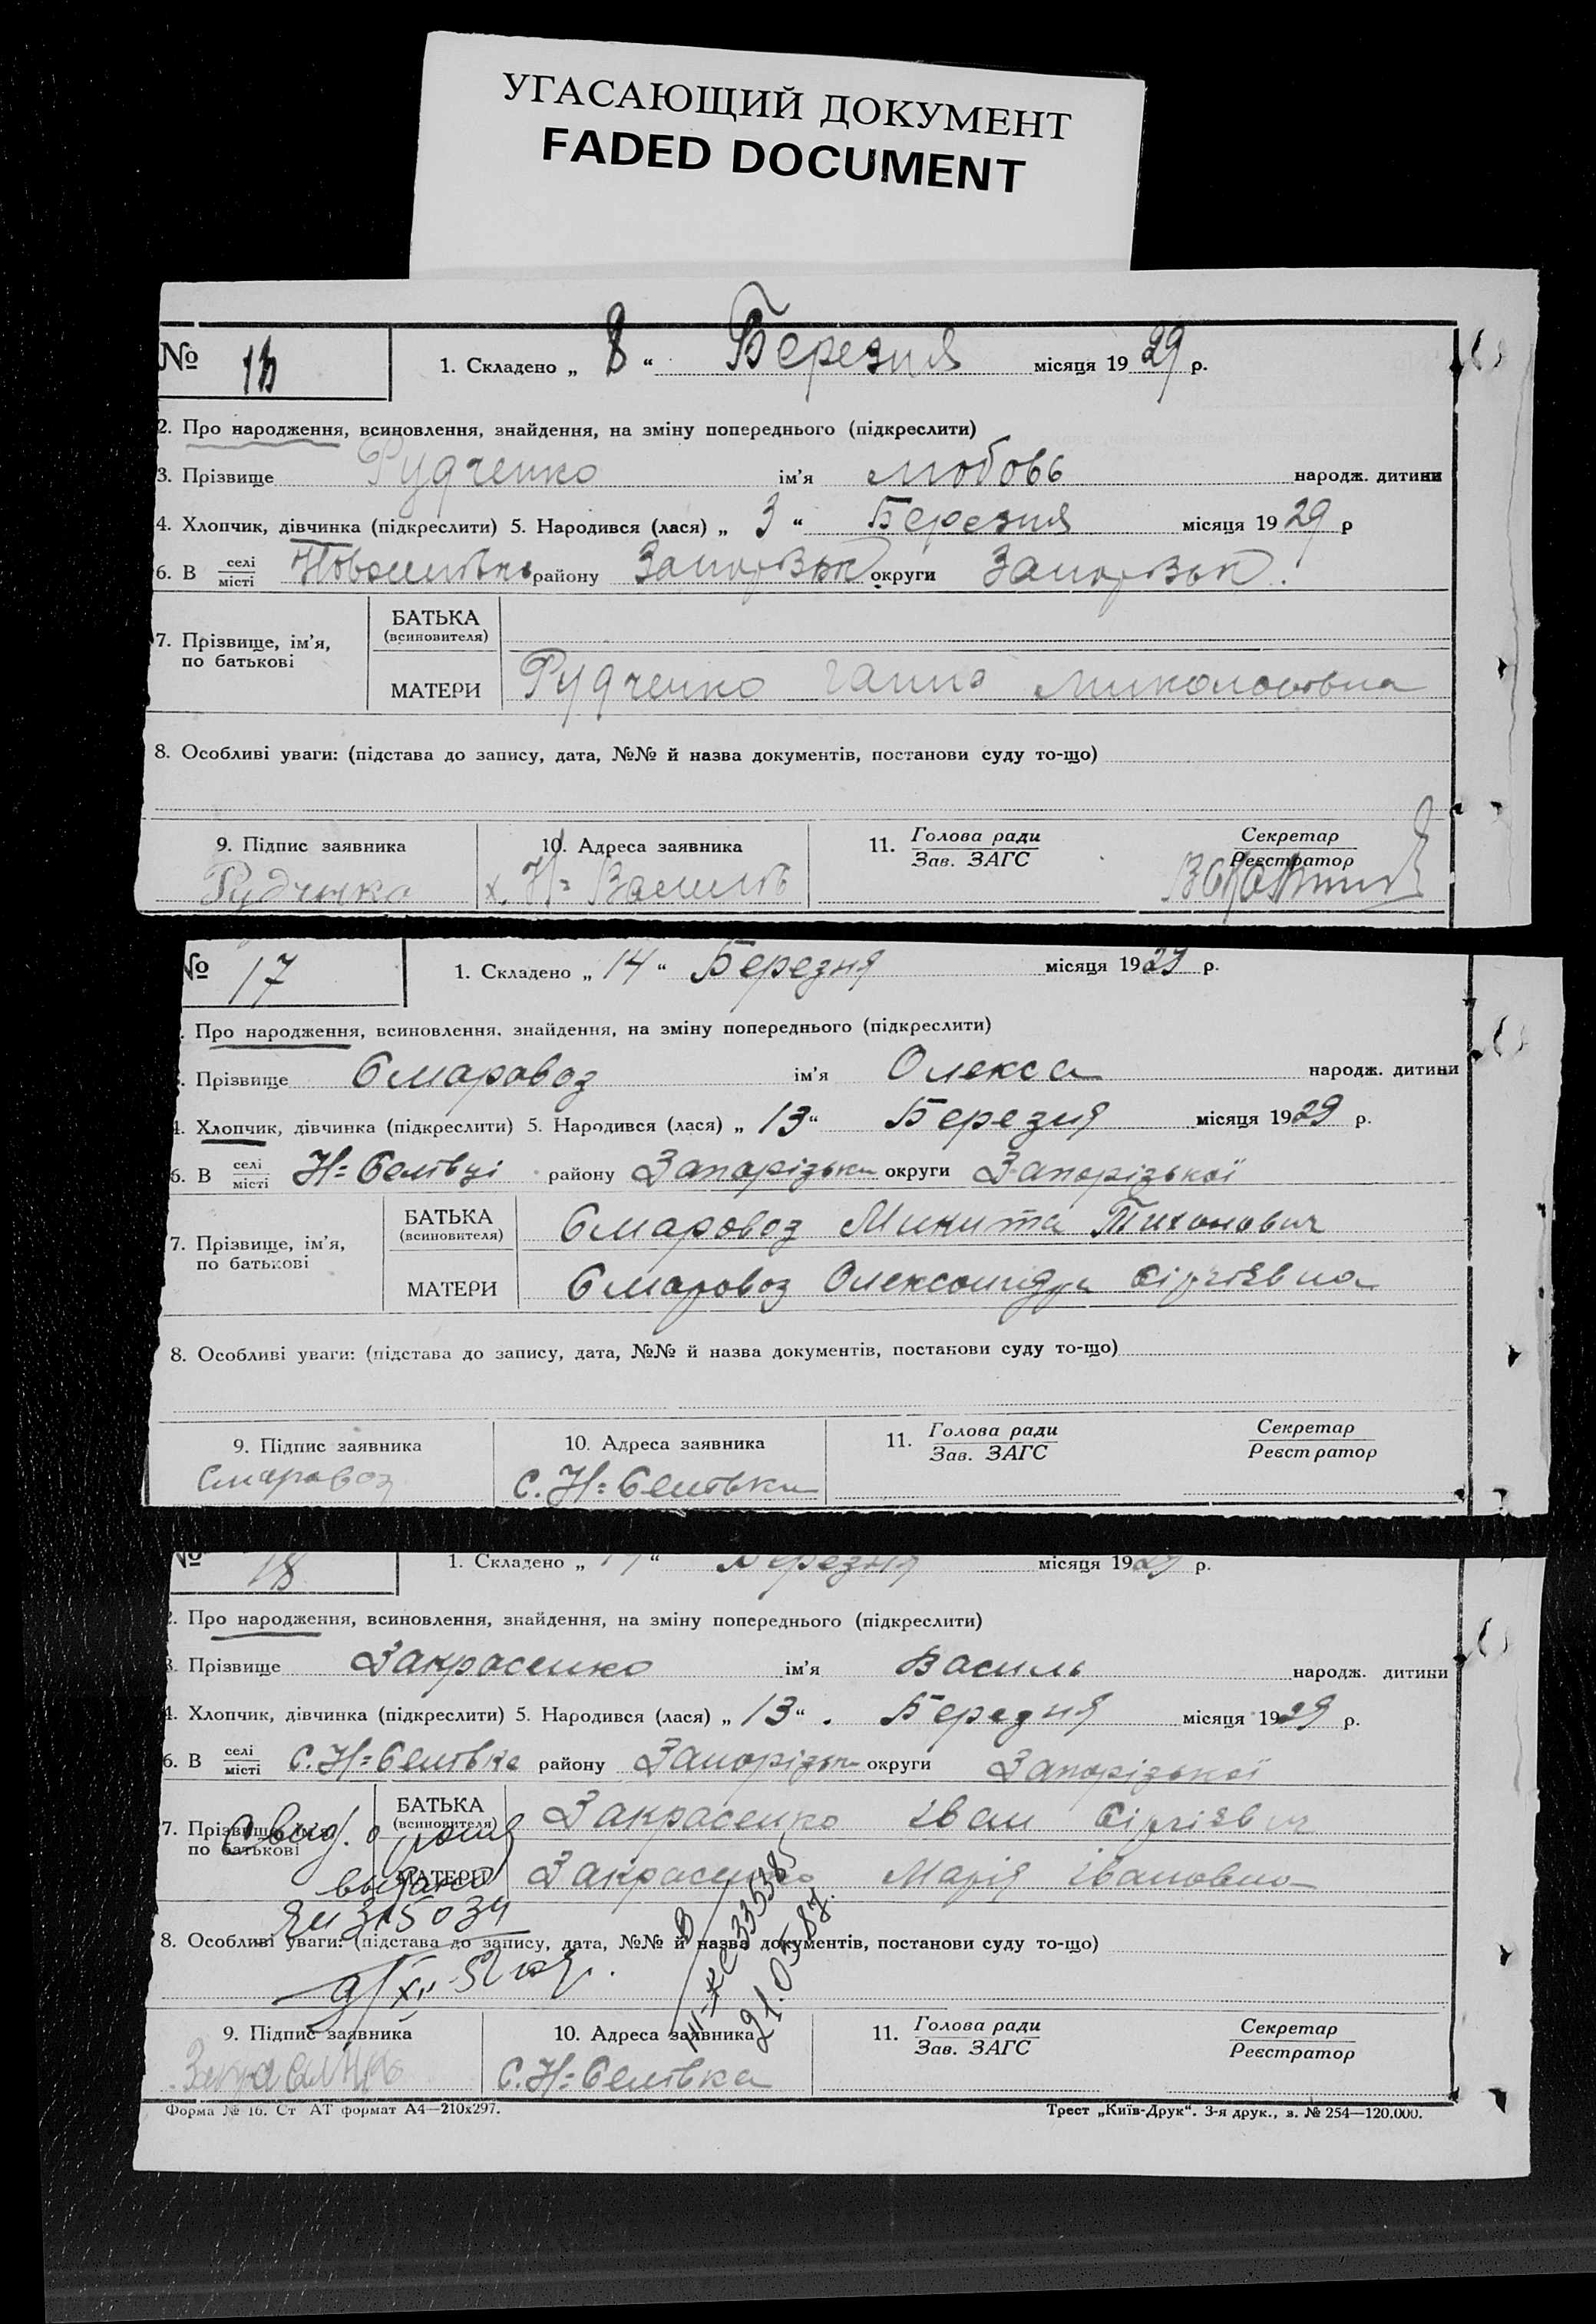 УГАСАЮЩИЙ ДОКУМЕНТ
FADED DOCUMENT
№ 1. Складено „ 8 “ Березня місяця 1929 р.
2. Про народження, всиновлення, знайдення, на зміну попереднього (підкреслити)
3. Прізвище Рудченко ім'я Любовь народж. дитини
4. Хлопчик, дівчинка (підкреслити) 5. Народився (лася) „ 3 “ Березня місяця 1929 р
6. В селі/місті району округи
7. Прізвище, ім'я, по батькові
БАТЬКА (всиновителя)
МАТЕРИ Рудченко Ганна
8. Особливі уваги: (підстава до запису, дата, №№ й назва документів, постанови суду то-що)
9. Підпис заявника 10. Адреса заявника 11. Голова ради/Зав. ЗАГС Секретар/Реєстратор
х. Н=
№ 17 1. Складено „ 14 “ Березня місяця 1929 р.
Про народження, всиновлення, знайдення, на зміну попереднього (підкреслити)
Прізвище Смаровоз ім'я Олекса народж. дитини
4. Хлопчик, дівчинка (підкреслити) 5. Народився (лася) „ 13 “ Березня місяця 1929 р.
6. В селі/місті району Запорізьк округи Запорізької
7. Прізвище, ім'я, по батькові
БАТЬКА (всиновителя) Смаровоз Микита Тихонович
МАТЕРИ Смаровоз Олександра Сіргієвна
8. Особливі уваги: (підстава до запису, дата, №№ й назва документів, постанови суду то-що)
9. Підпис заявника 10. Адреса заявника 11. Голова ради/Зав. ЗАГС Секретар/Реєстратор
Смаровоз с. Н=
№ 18 1. Складено „ “ Березня місяця 1929 р.
2. Про народження, всиновлення, знайдення, на зміну попереднього (підкреслити)
3. Прізвище Закрасенко ім'я Василь народж. дитини
4. Хлопчик, дівчинка (підкреслити) 5. Народився (лася) „ 13 “ Березня місяця 1929 р.
6. В селі/місті району Запорізьк округи Запорізької
7. Прізвище, ім'я, по батькові
БАТЬКА (всиновителя) Закрасенко Іван Сіргієвич
МАТЕРИ Закрасенко Марія Івановна
8. Особливі уваги: (підстава до запису, дата, №№ й назва документів, постанови суду то-що)
9. Підпис заявника 10. Адреса заявника 11. Голова ради/Зав. ЗАГС Секретар/Реєстратор
С. Н=
Форма № 16. Ст АТ формат А4—210х297. Трест „Київ-Друк“. 3-я друк., з. № 254—120.000.